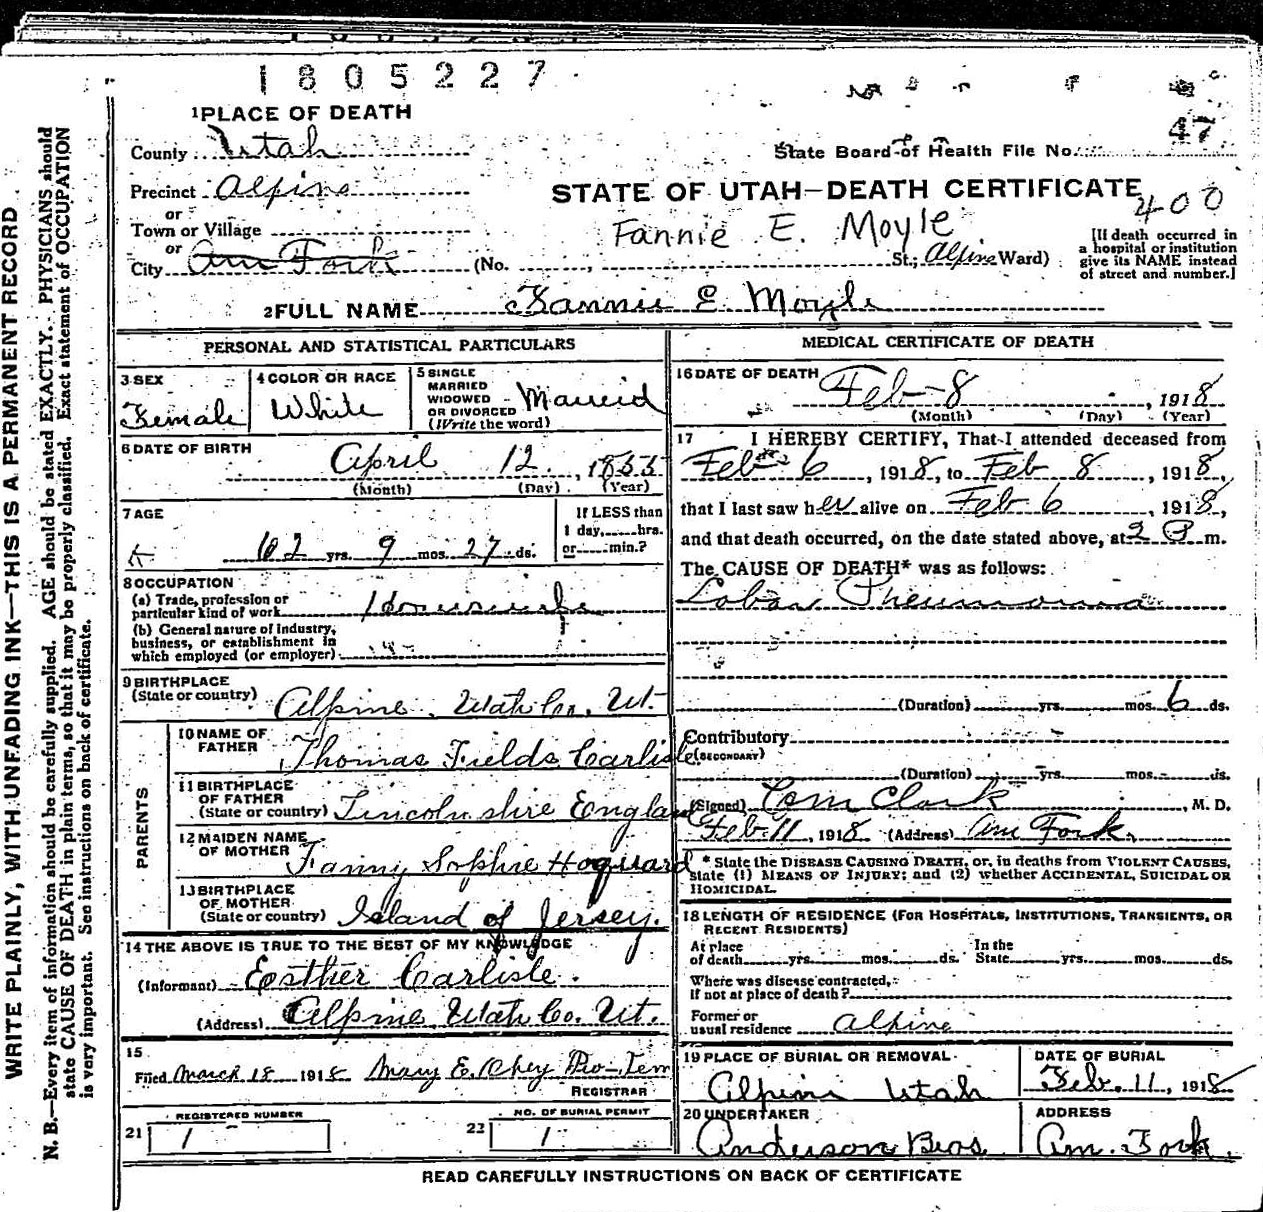 1805227
47
1 PLACE OF DEATH
County Utah
State Board of Health File No.
Precinct Alpine
STATE OF UTAH—DEATH CERTIFICATE
400
or
Town or Village
Fannie E. Moyle
or
City Am Fork (No. , St.; Alpine Ward)
[If death occurred in
a hospital or institution
give its NAME instead
of street and number.]
2 FULL NAME Fannie E. Moyle
PERSONAL AND STATISTICAL PARTICULARS
3 SEX
Female
4 COLOR OR RACE
White
5 SINGLE
MARRIED
WIDOWED
OR DIVORCED
(Write the word)
Married
6 DATE OF BIRTH
April 12, 1855
(Month) (Day) (Year)
7 AGE
62 yrs. 9 mos. 27 ds.
If LESS than
1 day, hrs.
or min.?
8 OCCUPATION
(a) Trade, profession or
particular kind of work Housewife
(b) General nature of industry,
business, or establishment in
which employed (or employer)
9 BIRTHPLACE
(State or country) Alpine, Utah Co., Ut.
PARENTS
10 NAME OF
FATHER Thomas Fields Carlisle
11 BIRTHPLACE
OF FATHER
(State or country) Lincolnshire England
12 MAIDEN NAME
OF MOTHER Fanny Sophie Hoquard
13 BIRTHPLACE
OF MOTHER
(State or country) Island of Jersey.
14 THE ABOVE IS TRUE TO THE BEST OF MY KNOWLEDGE
(Informant) Esther Carlisle.
(Address) Alpine Utah Co. Ut.
15
Filed March 18 1918 Mary E. Pro-Tem
REGISTRAR
21 REGISTERED NUMBER
1
22 NO. OF BURIAL PERMIT
1
MEDICAL CERTIFICATE OF DEATH
16 DATE OF DEATH
Feb-8, 1918
(Month) (Day) (Year)
17 I HEREBY CERTIFY, That I attended deceased from
Feb 6, 1918, to Feb 8, 1918,
that I last saw her alive on Feb 6, 1918,
and that death occurred, on the date stated above, at 2 P m.
The CAUSE OF DEATH* was as follows:
Lobar Pneumonia
(Duration) yrs. mos. 6 ds.
Contributory
(SECONDARY)
(Duration) yrs. mos. ds.
(Signed) Clark, M. D.
Feb 11, 1918 (Address) Am Fork.
* State the DISEASE CAUSING DEATH, or, in deaths from VIOLENT CAUSES,
state (1) MEANS OF INJURY; and (2) whether ACCIDENTAL, SUICIDAL OR
HOMICIDAL.
18 LENGTH OF RESIDENCE (FOR HOSPITALS, INSTITUTIONS, TRANSIENTS, OR
RECENT RESIDENTS)
At place
of death yrs. mos. ds.
In the
State yrs. mos. ds.
Where was disease contracted,
If not at place of death?
Former or
usual residence Alpine
19 PLACE OF BURIAL OR REMOVAL
Alpine Utah
DATE OF BURIAL
Feb. 11, 1918
20 UNDERTAKER
Anderson Bros
ADDRESS
Am. Fork.
READ CAREFULLY INSTRUCTIONS ON BACK OF CERTIFICATE
WRITE PLAINLY, WITH UNFADING INK—THIS IS A PERMANENT RECORD
N. B.—Every item of information should be carefully supplied. AGE should be stated EXACTLY. PHYSICIANS should
state CAUSE OF DEATH in plain terms, so that it may be properly classified. Exact statement of OCCUPATION
is very important. See instructions on back of certificate.